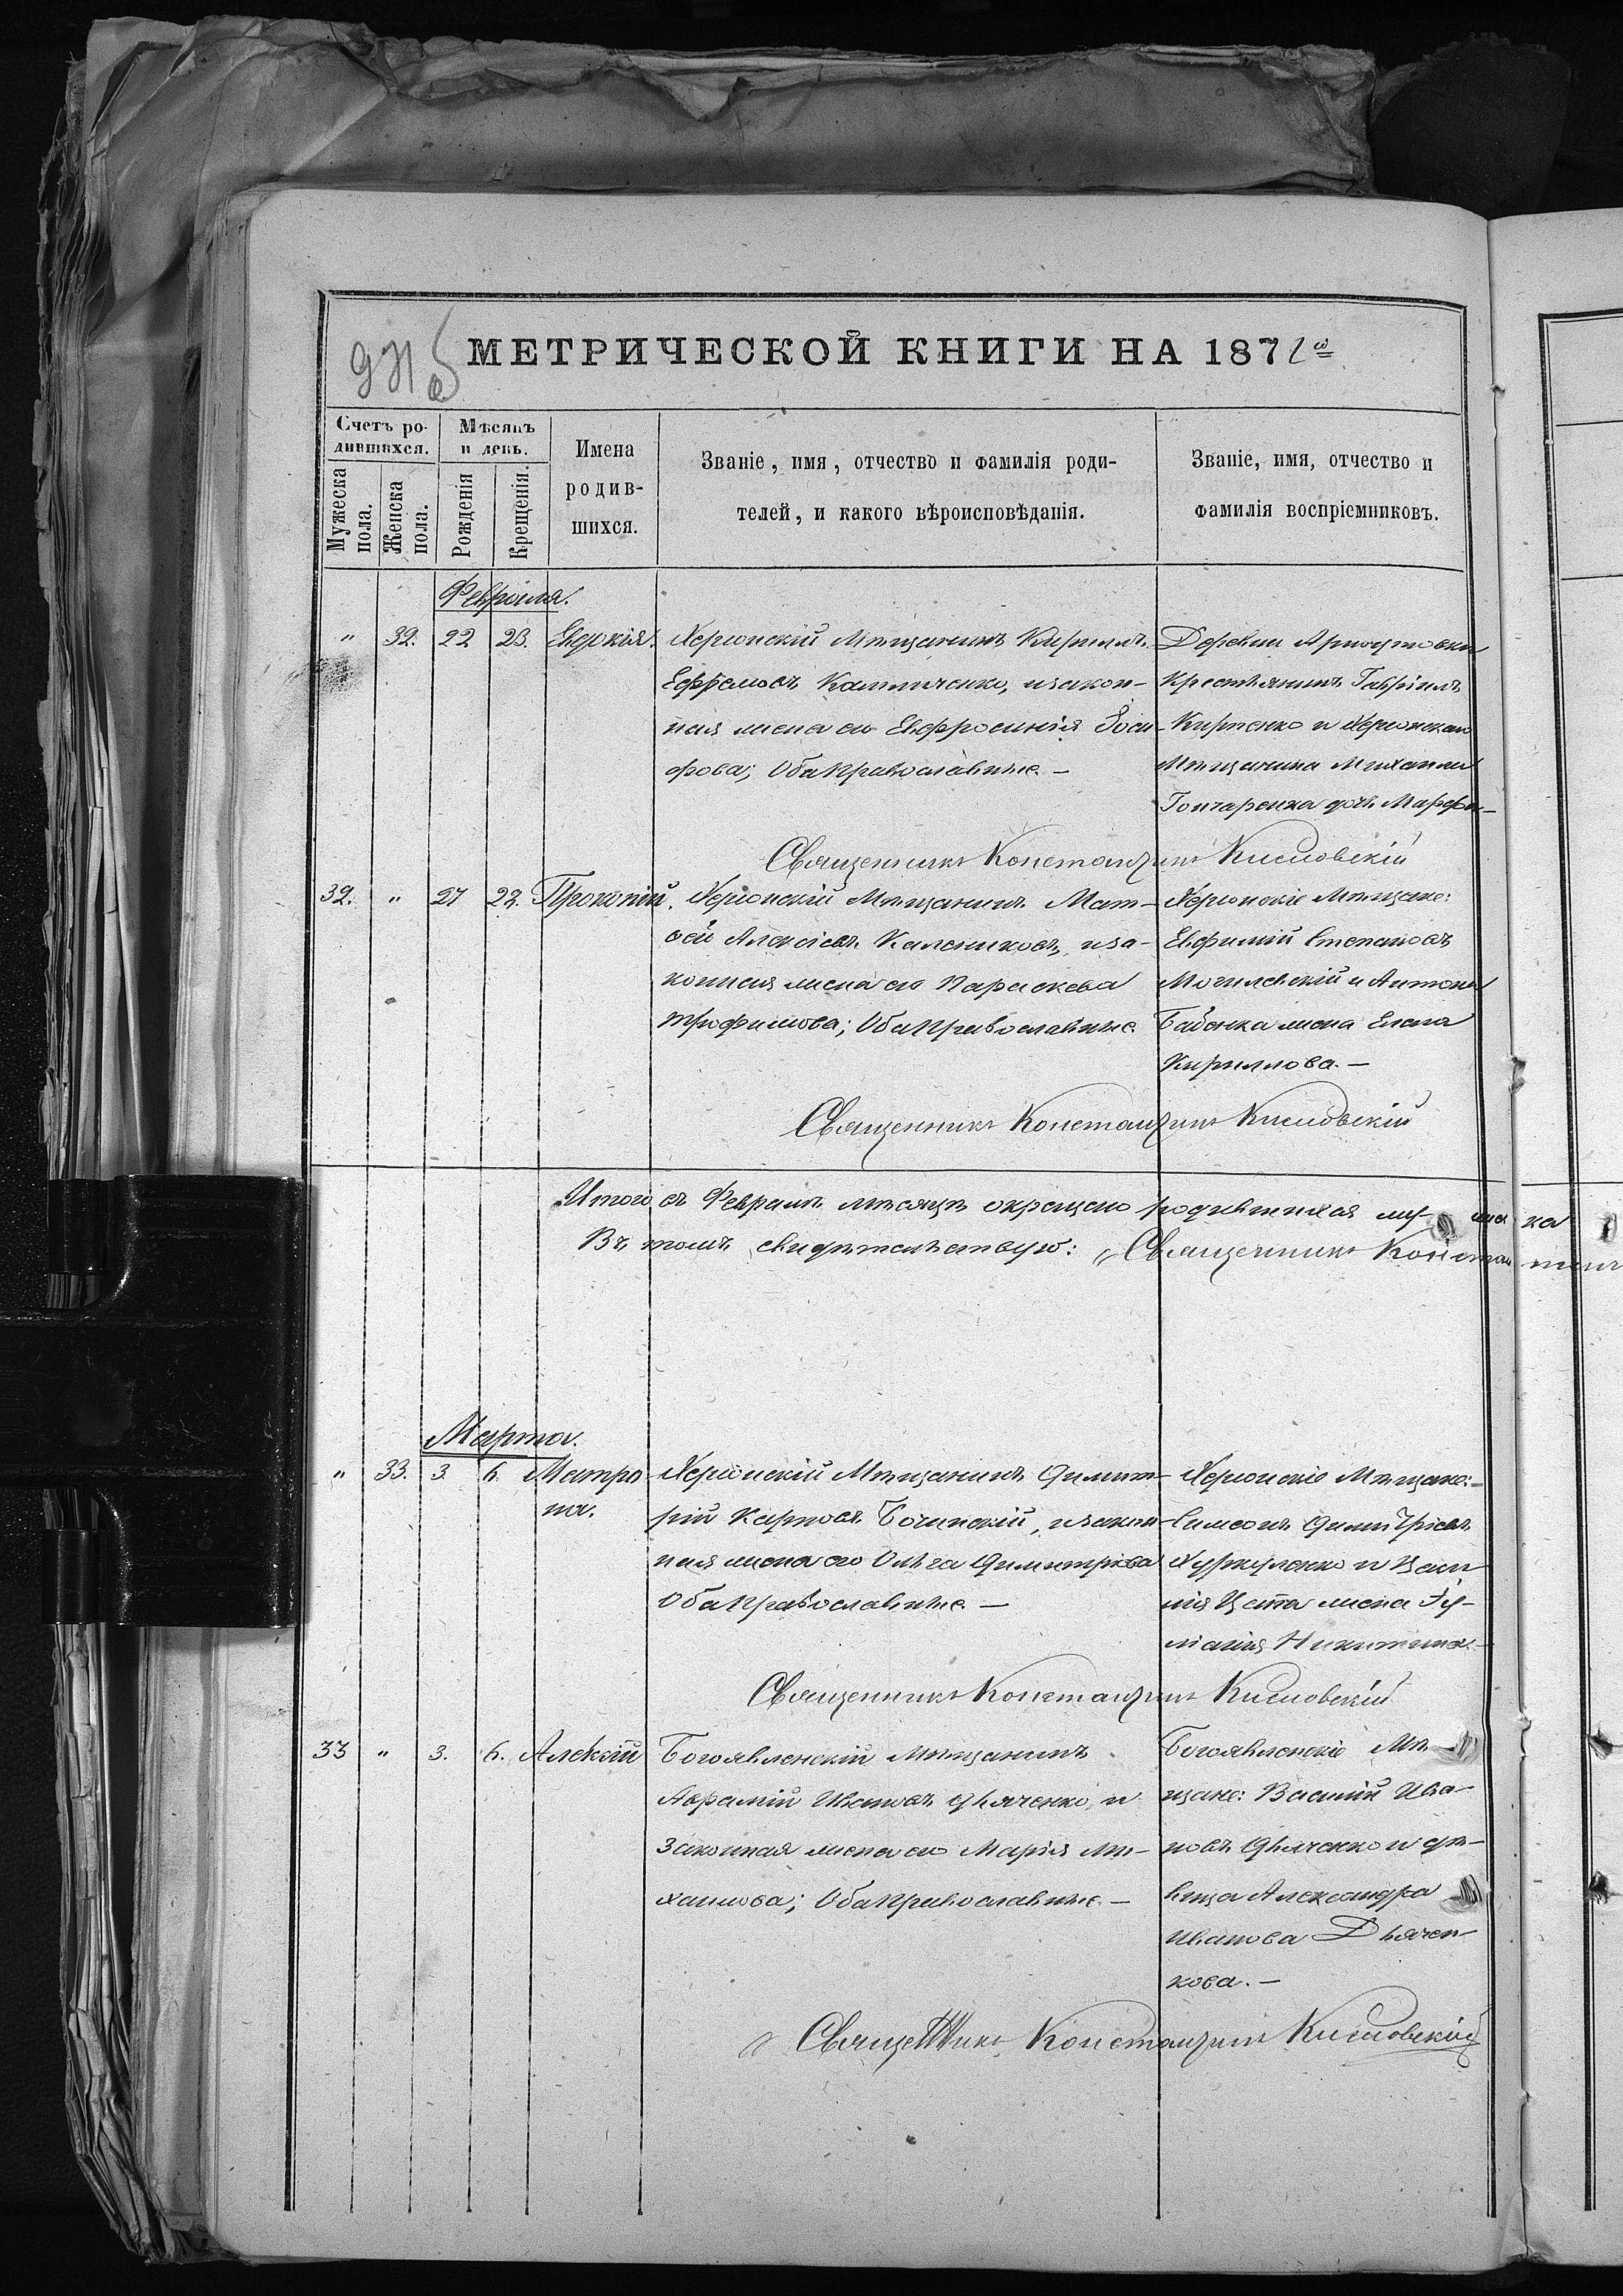 МЕТРИЧЕСКОЙ КНИГИ НА 1871
Счетъ ро-
дившихся.
Мѣсяцъ
и день.
Мужеска
пола.
Женска
пола.
Рожденія
Крещенія.
Имена
родив-
шихся.
Званіе, имя, отчество и фамилія роди-
телей, и какого вѣроисповѣданія.
Званіе, имя, отчество и
фамилія воспріемниковъ.
Февраля.
" 32. 22 23. Евдокія.
Херсонскій Мѣщанинъ Кириллъ
Ефремовъ Калиниченко, и закон-
ная жена его Евфросинія Іоси-
фова; Оба Православные. —
Деревни Арнаутовки
Крестьянинъ Гавріилъ
Кириенко и Херсонскаго
Мѣщанина Михаила
Гончаренка дочь Марфа —
Священникъ Константинъ Кисловскій
32. " 27 28. Прокопій.
Херсонскій Мѣщанинъ Мат-
ѳей Алексіевъ Калениковъ, и за-
конная жена его Параскева
Трофимова; Оба Православные.
Херсонскіе Мѣщане:
Евфимій Степановъ
Могилевскій и Антона
Бабенка жена Елена
Кириллова. —
Священникъ Константинъ Кисловскій
Итого въ Февралѣ мѣсяцѣ окрещено родившихся
Въ томъ свидѣтельствую: Священникъ
Марта.
" 33. 3. 6. Матро
на.
Херсонскій Мѣщанинъ Димит-
рій Карповъ , и закон-
ная жена его Ольга Димитріева
Оба Православные. —
Херсонскіе Мѣщане: —
Симеонъ Димитріевъ
и
жена Іу-
ліанія Никитина. —
Священникъ Константинъ Кисловскій
33 " 3. 6. Алексій
Богоявленскій мѣщанинъ
Аврамій Ивановъ Дьяченко, и
Законная жена его Марія Ми-
хаилова; Оба Православные —
Богоявленскіе Мѣ-
щане: Василій Ива-
новъ Дьяченко и дѣ-
вица Александра
Иванова Дьячен-
кова. —
Священникъ Константинъ Кисловскій